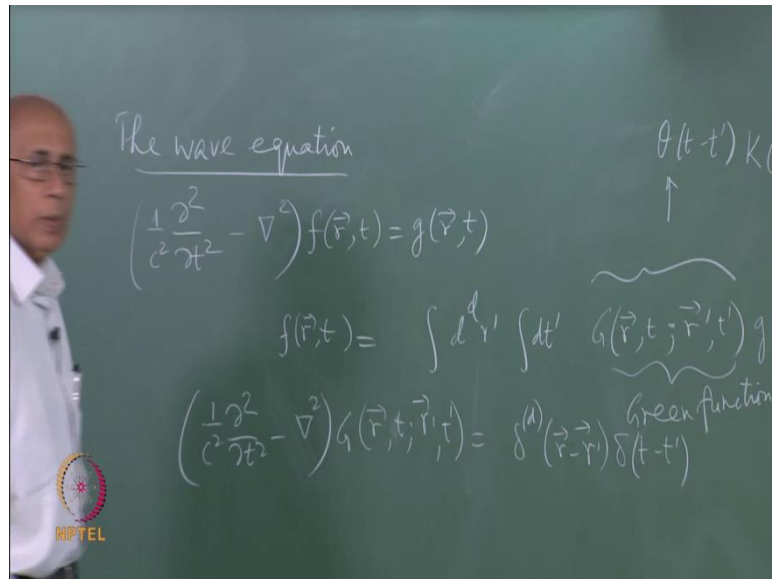 The wave equation
θ(t-t') K(
(1/c² ∂²/∂t² - ∇²) f(r⃗,t) = g(r⃗,t)
f(r⃗,t) = ∫ d^d r' ∫ dt' G(r⃗,t; r⃗',t') g
Green function
(1/c² ∂²/∂t² - ∇²) G(r⃗,t; r⃗',t') = δ^(d)(r⃗-r⃗') δ(t-t')
NPTEL